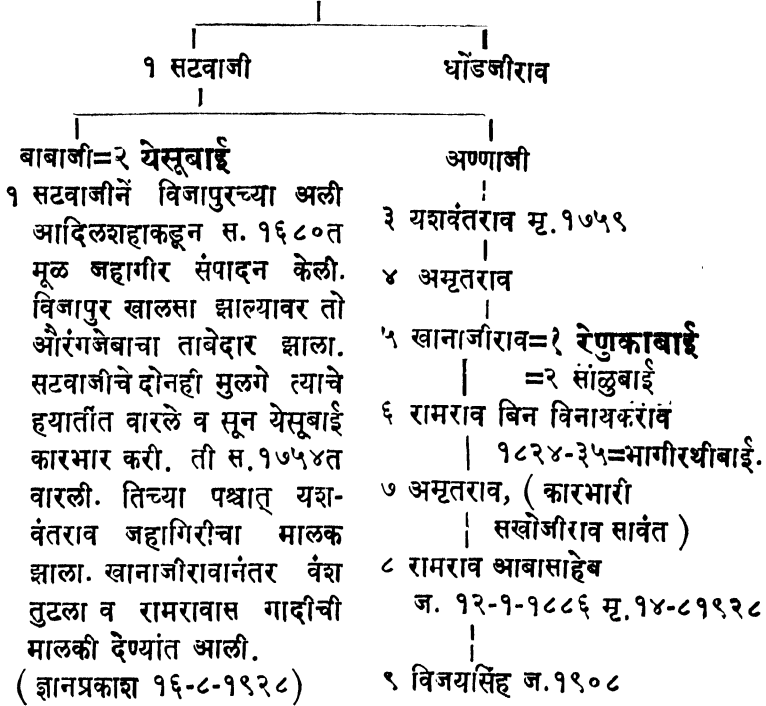 १ सटवाजी धोंडजीराव
बाबाजी=२ येसूबाई
१ सटवाजीनें विजापुरच्या अली
आदिलशहाकडून स. १६८०त
मूळ जहागीर संपादन केली.
विजापुर खालसा झाल्यावर तो
औरंगजेबाचा ताबेदार झाला.
सटवाजीचे दोनही मुलगे त्याचे
हयातींत वारले व सून येसूबाई
कारभार करी. ती स.१७५४त
वारली. तिच्या पश्चात् यश-
वंतराव जहागिरीचा मालक
झाला. खानाजीरावानंतर वंश
तुटला व रामरावास गादीची
मालकी देण्यांत आली.
(ज्ञानप्रकाश १६-८-१९२८)
अण्णाजी
३ यशवंतराव मृ.१७५९
४ अमृतराव
५ खानाजीराव=१ रेणुकाबाई
=२ सांळुबाई
६ रामराव बिन विनायकराव
१८२४-३५=भागीरथीबाई.
७ अमृतराव, ( कारभारी
सखोजीराव सावंत )
८ रामराव आबासाहेब
ज. १२-१-१८८६ मृ.१४-८१९२८
९ विजयसिंह ज.१९०८